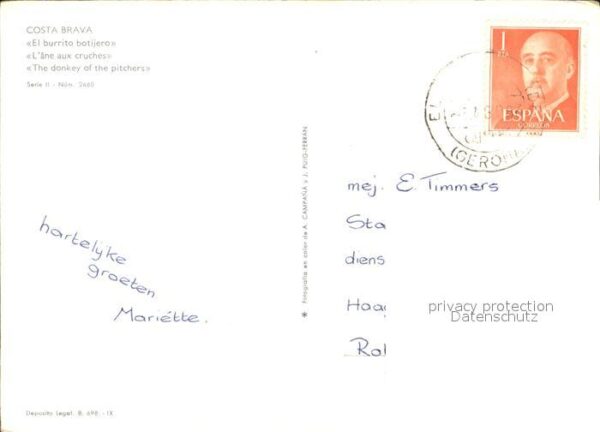 COSTA BRAVA
«El burrito botijero»
«L'âne aux cruches»
«The donkey of the pitchers»
Serie II - Núm. 2680
hartelijke
groeten
Mariétte.
Deposito Legal. B. 698.-IX
Fotografía en color de A. CAMPAÑA y J. PUIG-FERRAN
1
PTA
ESPAÑA
CORREOS
(GERONA)
mej. E. Timmers
Sta
diens
Haag
Rot
privacy protection
Datenschutz